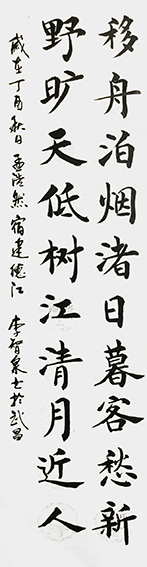 移舟泊烟渚日暮客愁新
野旷天低树江清月近人
岁在丁酉秋日孟浩然宿建德江 李智泉书于武昌